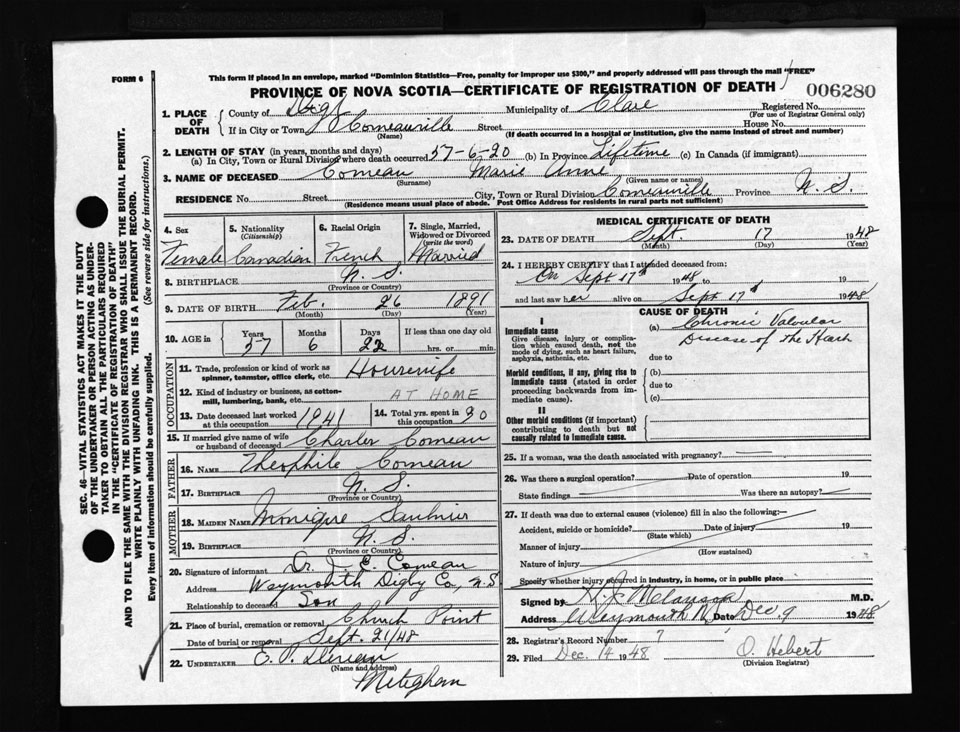 FORM 6
This form if placed in an envelope, marked "Dominion Statistics—Free, penalty for improper use $300," and properly addressed will pass through the mail "FREE"
PROVINCE OF NOVA SCOTIA—CERTIFICATE OF REGISTRATION OF DEATH
006280
1. PLACE OF DEATH
County of Digby Municipality of Clare Registered No.
(For use of Registrar General only)
If in City or Town Comeauville Street House No.
(Name) (If death occurred in a hospital or institution, give the name instead of street and number)
2. LENGTH OF STAY (in years, months and days)
(a) In City, Town or Rural Division where death occurred 57-6-20 (b) In Province Lifetime (c) In Canada (if immigrant)
3. NAME OF DECEASED Comeau Marie Anne
(Surname) (Given name or names)
RESIDENCE No. Street City, Town or Rural Division Comeauville Province N.S.
(Residence means usual place of abode. Post Office Address for residents in rural parts not sufficient)
4. Sex
Female
5. Nationality
(Citizenship)
Canadian
6. Racial Origin
French
7. Single, Married, Widowed or Divorced
(write the word)
Married
8. BIRTHPLACE N.S.
(Province or Country)
9. DATE OF BIRTH Feb. 26 1891
(Month) (Day) (Year)
10. AGE in Years Months Days If less than one day old
57 6 22 hrs. or min.
OCCUPATION
11. Trade, profession or kind of work as spinner, teamster, office clerk, etc. Housewife
12. Kind of industry or business, as cotton-mill, lumbering, bank, etc. AT HOME
13. Date deceased last worked at this occupation 1941
14. Total yrs. spent in this occupation 30
15. If married give name of wife or husband of deceased Charles Comeau
FATHER
16. NAME Theophile Comeau
17. BIRTHPLACE N.S.
(Province or Country)
MOTHER
18. MAIDEN NAME Monique Saulnier
19. BIRTHPLACE N.S.
(Province or Country)
20. Signature of informant Dr. J. E. Comeau
Address Weymouth Digby Co, N.S
Relationship to deceased Son
21. Place of burial, cremation or removal Church Point
Date of burial or removal Sept. 21/48
22. UNDERTAKER E. P.
(Name and address)
Meteghan
MEDICAL CERTIFICATE OF DEATH
23. DATE OF DEATH Sept. 17 1948
(Month) (Day) (Year)
24. I HEREBY CERTIFY that I attended deceased from:
On Sept 17th 1948 to 19
and last saw her alive on Sept 17th 1948
CAUSE OF DEATH
I
Immediate cause
Give disease, injury or complication which caused death, not the mode of dying, such as heart failure, asphyxia, asthenia, etc.
(a) Chronic Valvular
Disease of the Heart
due to
Morbid conditions, if any, giving rise to immediate cause (stated in order proceeding backwards from immediate cause).
(b)
due to
(c)
II
Other morbid conditions (if important) contributing to death but not causally related to immediate cause.
25. If a woman, was the death associated with pregnancy?
26. Was there a surgical operation? Date of operation 19
State findings Was there an autopsy?
27. If death was due to external causes (violence) fill in also the following:—
Accident, suicide or homicide? Date of injury 19
(State which)
Manner of injury
(How sustained)
Nature of injury
Specify whether injury occurred in industry, in home, or in public place
Signed by H. J. Melanson M.D.
Address Weymouth N. Date Dec. 9 1948
28. Registrar's Record Number 7
29. Filed Dec. 14 1948 O. Hebert
(Division Registrar)
SEC. 46—VITAL STATISTICS ACT MAKES IT THE DUTY
OF THE UNDERTAKER OR PERSON ACTING AS UNDER-
TAKER TO OBTAIN ALL THE PARTICULARS REQUIRED
IN THE "CERTIFICATE OF REGISTRATION OF DEATH"
AND TO FILE THE SAME WITH THE DIVISION REGISTRAR WHO SHALL ISSUE THE BURIAL PERMIT.
WRITE PLAINLY WITH UNFADING INK. THIS IS A PERMANENT RECORD.
Every item of information should be carefully supplied. (See reverse side for instructions.)